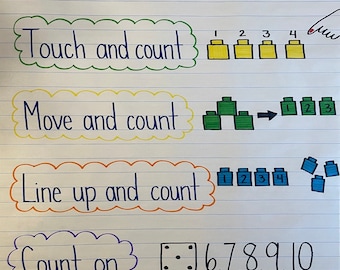 Touch and count 1 2 3 4
Move and count 1 2 3
Line up and count 1 2 3 4
Count on 6 7 8 9 10